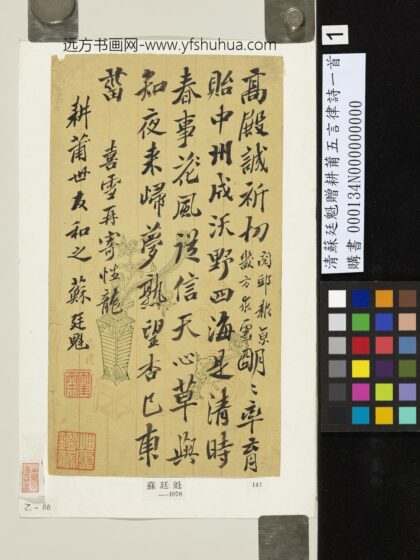 远方书画网-www.yfshuhua.com
高殿誠祈切
明〻率育
貽中州成沃野四海是清時
春事花風信天心草與
知夜來歸夢熟望杏已東
菑
喜雪再寄性龍
耕莆世友和之 蘇廷魁
蘇廷魁
—1878
143
乙-88
1
清蘇廷魁贈耕莆五言律詩一首
購書 000134N000000000